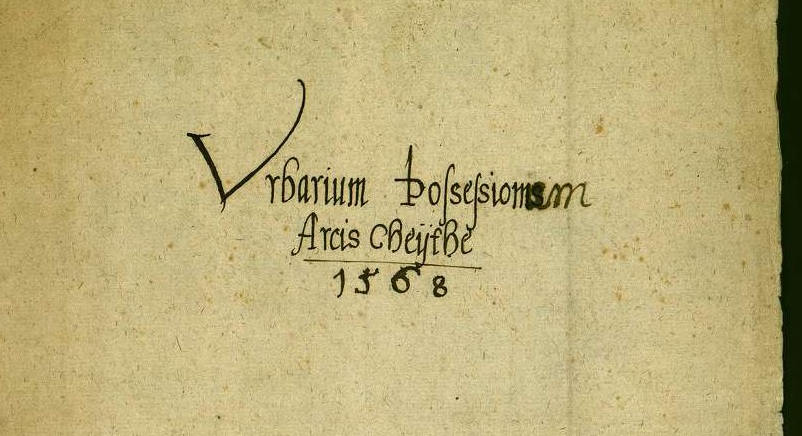 Vrbarium Possessionum
Arcis Cheÿthe
1568